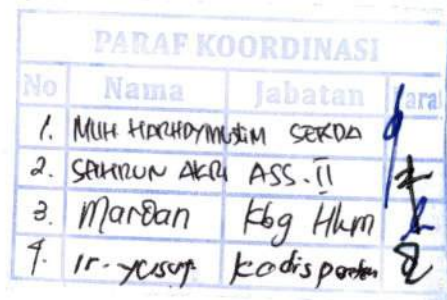 PARAF KOORDINASI
No Nama Jabatan Paraf
1. MUH SEKDA
2. SAHRUN AKRI ASS. II
3. Mardan Kbg Hkm
4. Ir. yusuf Kadis